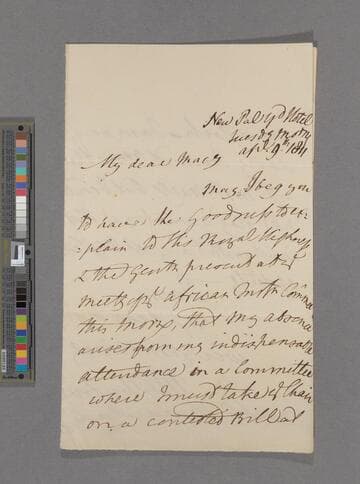 New Pal Yd Hotel
Tuesdy morng
apl 9th 1811
My dear Macy
may I beg you
to have the Goodness to ex:
:plain to His Royal Highness
& the Gentn present at
meetg African Instn
this morng, that my absence
arises from my indispensable
attendance in a Committee
where I must take ye Chair
on a contested Bill at